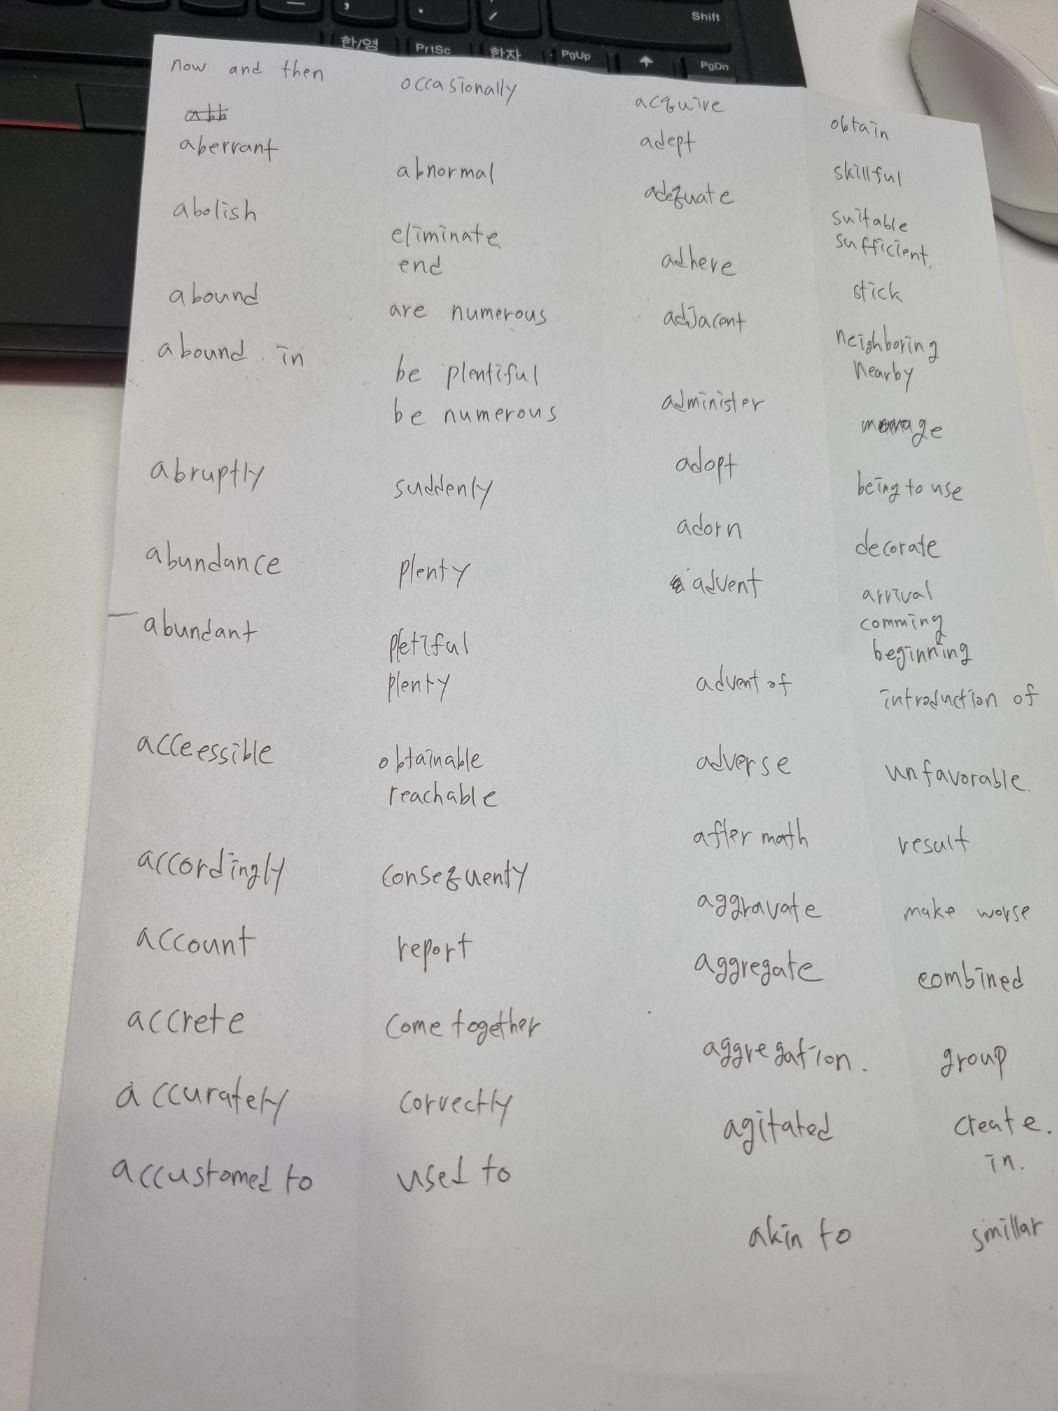 Shift
한/영 PrtSc 한자 PgUp PgDn
now and then occasionally
aberrant abnormal
abolish eliminate
end
abound are numerous
abound in be plentiful
be numerous
abruptly suddenly
abundance plenty
abundant pletiful
plenty
acceessible obtainable
reachable
accordingly consequenty
account report
accrete come together
accurately correctly
accustomed to used to
acquire obtain
adept skillful
adequate suitable
sufficient.
adhere stick
adjacent neighboring
nearby
administer manage
adopt being to use
adorn decorate
advent arrival
comming
beginning
advent of introduction of
adverse unfavorable.
after math result
aggravate make worse
aggregate combined
aggregation. group
agitated create.
in.
akin to smillar